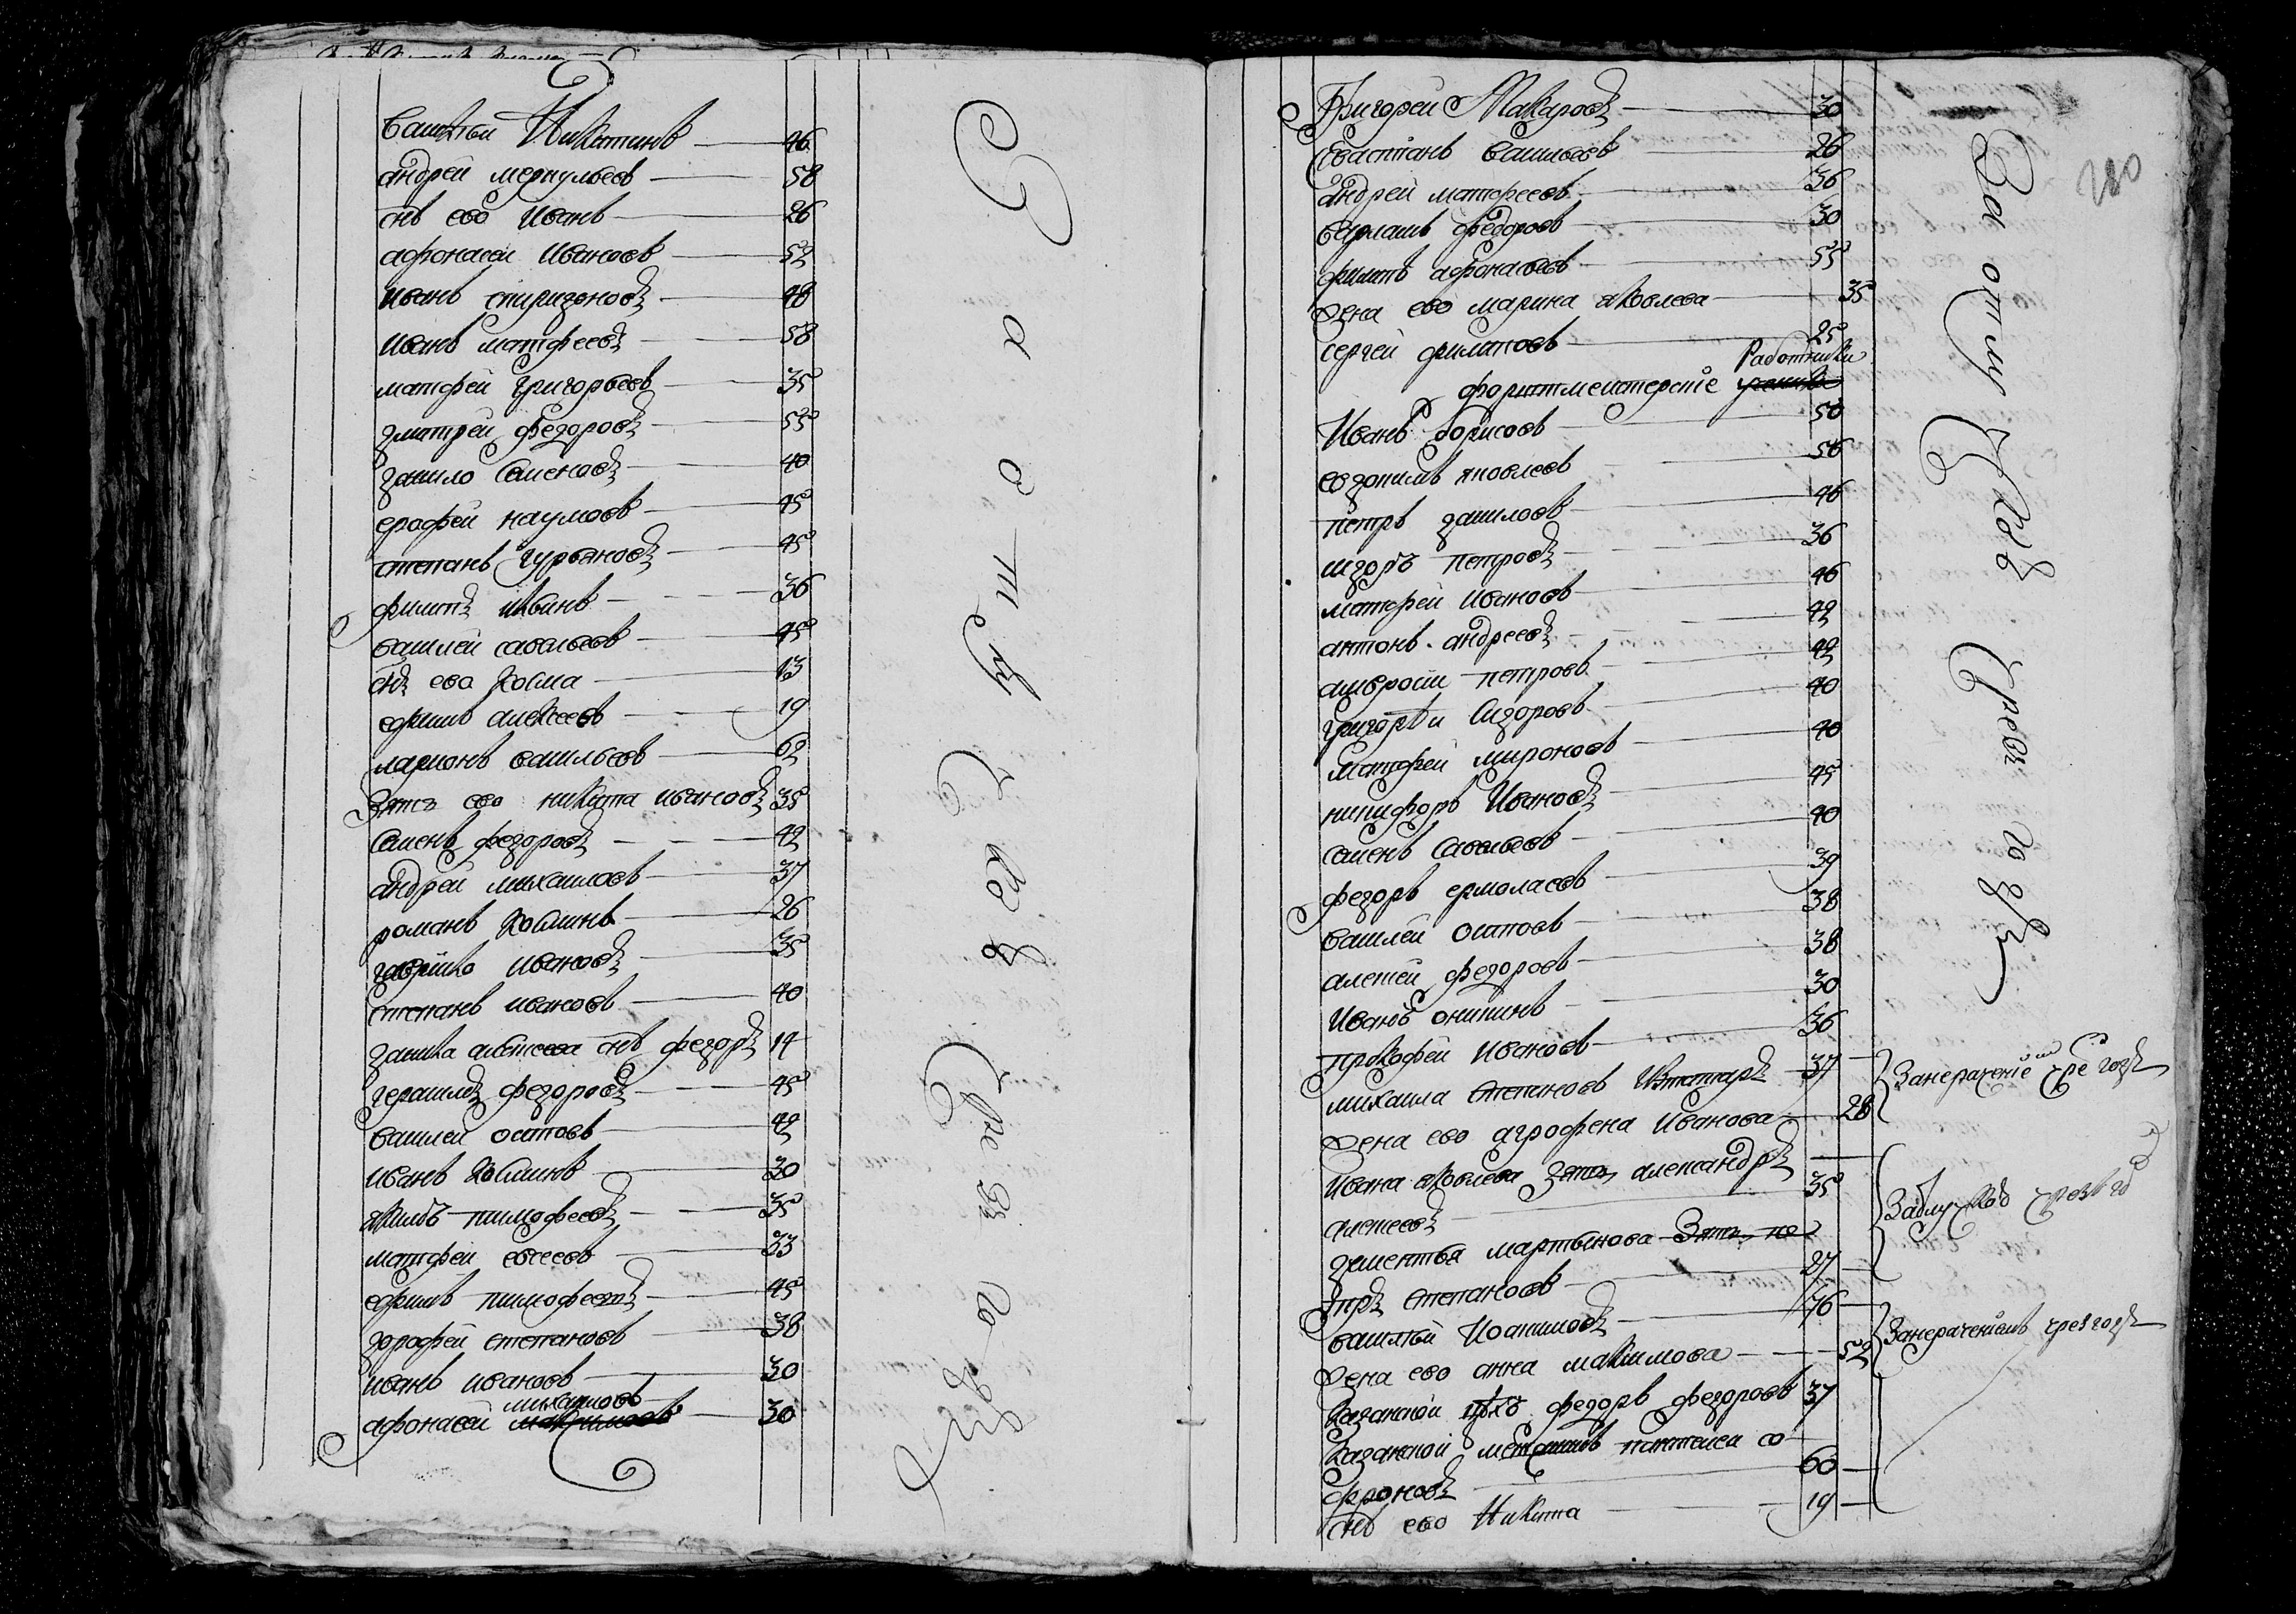 Василей Никитинъ 46
андрей меркульевъ 58
снъ ево Иванъ 26
афонасеи Ивановъ 52
Иванъ спиридоновъ 48
Иванъ матфеевъ 58
матфей Григорьевъ 35
дмитрей федоровъ 55
данило Семеновъ 40
ерофей наумовъ 45
степанъ Гурьяновъ 45
филипъ Иванъ 36
василей савельевъ 45
снъ ево козма 13
ефимъ алексеевъ 19
ларионъ васильевъ 62
Зять ево никита ивановъ 35
Семенъ федоровъ 42
андрей михаиловъ 37
романъ козминъ 26
гаврило ивановъ 35
степанъ ивановъ 40
данила алексеева снъ федоръ 14
герасимъ федоровъ 45
василей осиповъ 42
иванъ козминъ 30
якимъ тимофеевъ 35
матфей евсеевъ 33
ефимъ тимофеевъ 45
дорофей степановъ 38
иванъ ивановъ 30
михаиловъ
афонасей максимовъ 30
За отлучкою чрезъ годъ
Григорей Макаровъ 30
Севастианъ васильевъ 26
андрей матфеевъ 36
варламъ федоровъ 30
филипъ афонасьевъ 55
жена ево марина яковлева 35
сергей филиповъ 25
Работники
форштмейстерские ученики
Иванъ борисовъ 50
евдокимъ яковлевъ 56
петръ даниловъ 46
сидоръ петровъ 36
матфей ивановъ 46
антонъ андреевъ 42
амвросии петровъ 42
григореи Сидоровъ 40
матфей мироновъ 40
никифоръ Ивановъ 45
Семенъ Савельевъ 40
федоръ ермолаевъ 39
василей осиповъ 38
алексей федоровъ 38
Иванъ оникинъ 30
прокофей ивановъ 36
михаила степановъ 37
жена ево агрофена Иванова 28
Ивана яковлева зять александръ
алексеевъ 35
дементья мартынова Зять пе
тръ степановъ 27
василей Иоакимовъ 76
жена ево анна максимова 52
казанской федоръ федоровъ 37
казанской пантелеи со
фроновъ 60
снъ ево Никита 19
280
За отлучкою чрезъ годъ
Занерачениемъ чрез годъ
За отлучкою чрезъ годъ
Занерачениемъ чрез годъ